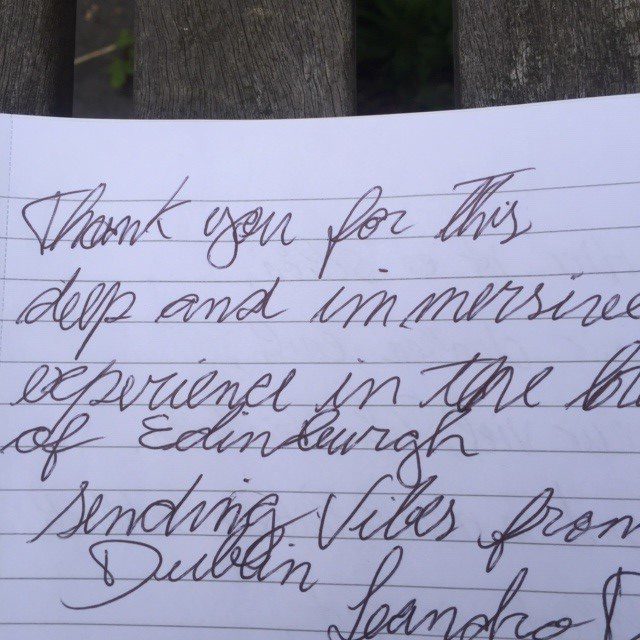 Thank you for this
deep and immersive
experience in the
of Edinburgh
sending Vibes from
Dublin Leandro